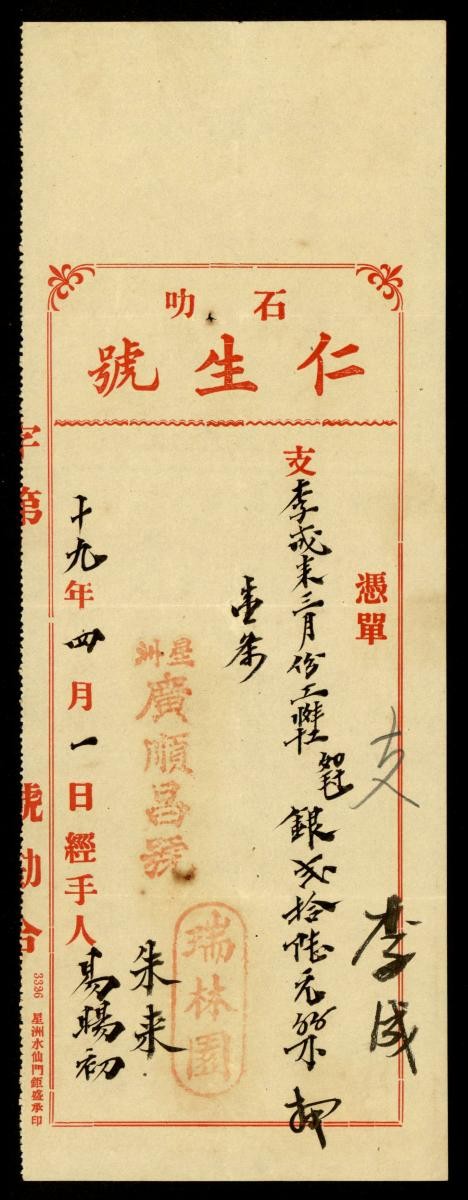 石叻
仁生號
憑單
支
李成
支李成來三月份工
銀弍拾陸元
壹條
星洲
廣順昌號
瑞林園
朱来
十九年四月一日經手人
字第
號勘合
3336 星洲水仙門鉅盛承印